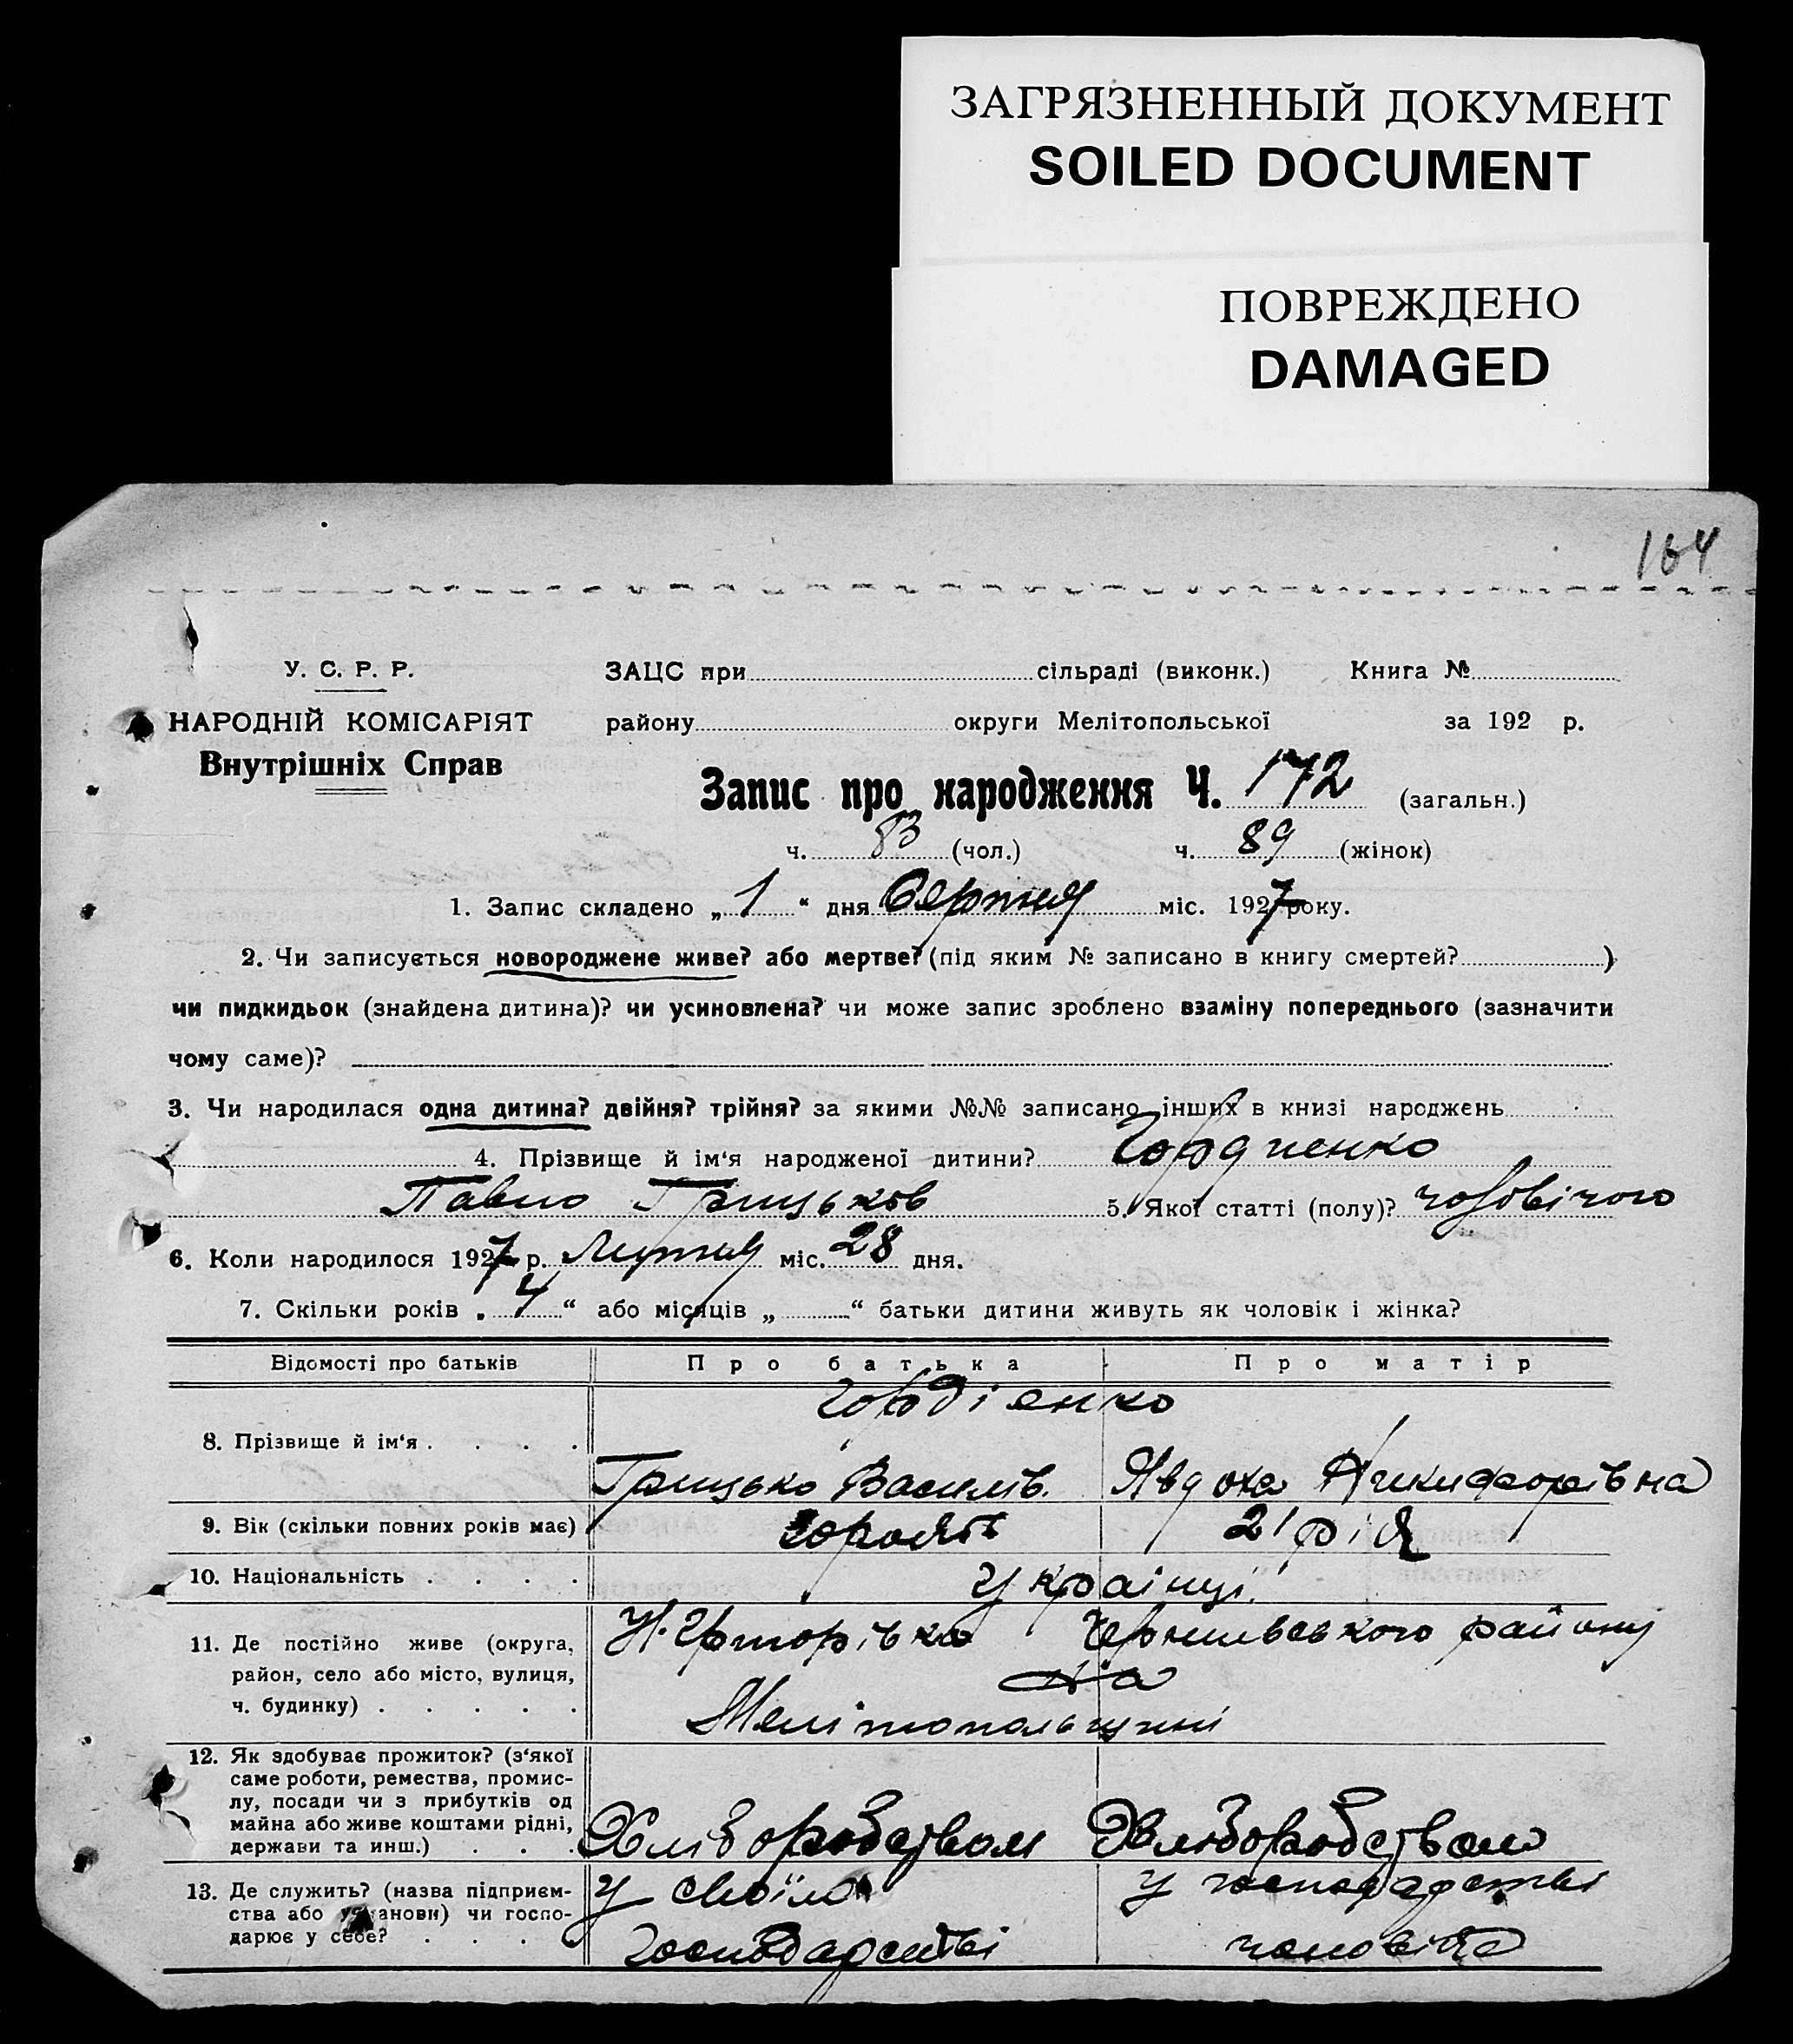 ЗАГРЯЗНЕННЫЙ ДОКУМЕНТ
SOILED DOCUMENT
ПОВРЕЖДЕНО
DAMAGED
164
У. С. Р. Р.
НАРОДНІЙ КОМІСАРІЯТ
Внутрішніх Справ
ЗАЦС при сільраді (виконк.) Книга №
району округи Мелітопольської за 192 р.
Запис про народження Ч. 172 (загальн.)
ч. 83 (чол.) ч. 89 (жінок)
1. Запис складено „ 1 “ дня Серпня міс. 1927 року.
2. Чи записується новороджене живе? або мертве? (під яким № записано в книгу смертей? )
чи пидкидьок (знайдена дитина)? чи усиновлена? чи може запис зроблено взаміну попереднього (зазначити
чому саме)?
3. Чи народилася одна дитина? двійня? трійня? за якими №№ записано інших в книзі народжень
4. Прізвище й ім‘я народженої дитини? Гордиенко
Павло Грицьків 5. Якої статті (полу)? чоловічого
6. Коли народилося 1927 р. Лютня міс. 28 дня.
7. Скільки років „ 4 “ або місяців „ “ батьки дитини живуть як чоловік і жінка?
Відомості про батьків Про батька Про матір
Гордіенко
8. Прізвище й ім‘я
Грицько Василів. Явдоха Никифорівна
9. Вік (скільки повних років має) 21 рік
10. Національність Українці
11. Де постійно живе (округа,
район, село або місто, вулиця,
ч. будинку)
Н. Григорівка Чернигівського району
на
Мелітопольщині
12. Як здобуває прожиток? (з‘якої
саме роботи, ремества, промис-
лу, посади чи з прибутків од
майна або живе коштами рідні,
держави та инш.)
Хліборобством Хліборобством
13. Де служить? (назва підприєм-
ства або установи) чи госпо-
дарює у себе?
у своїм у господарстві
господарстві чоловіка